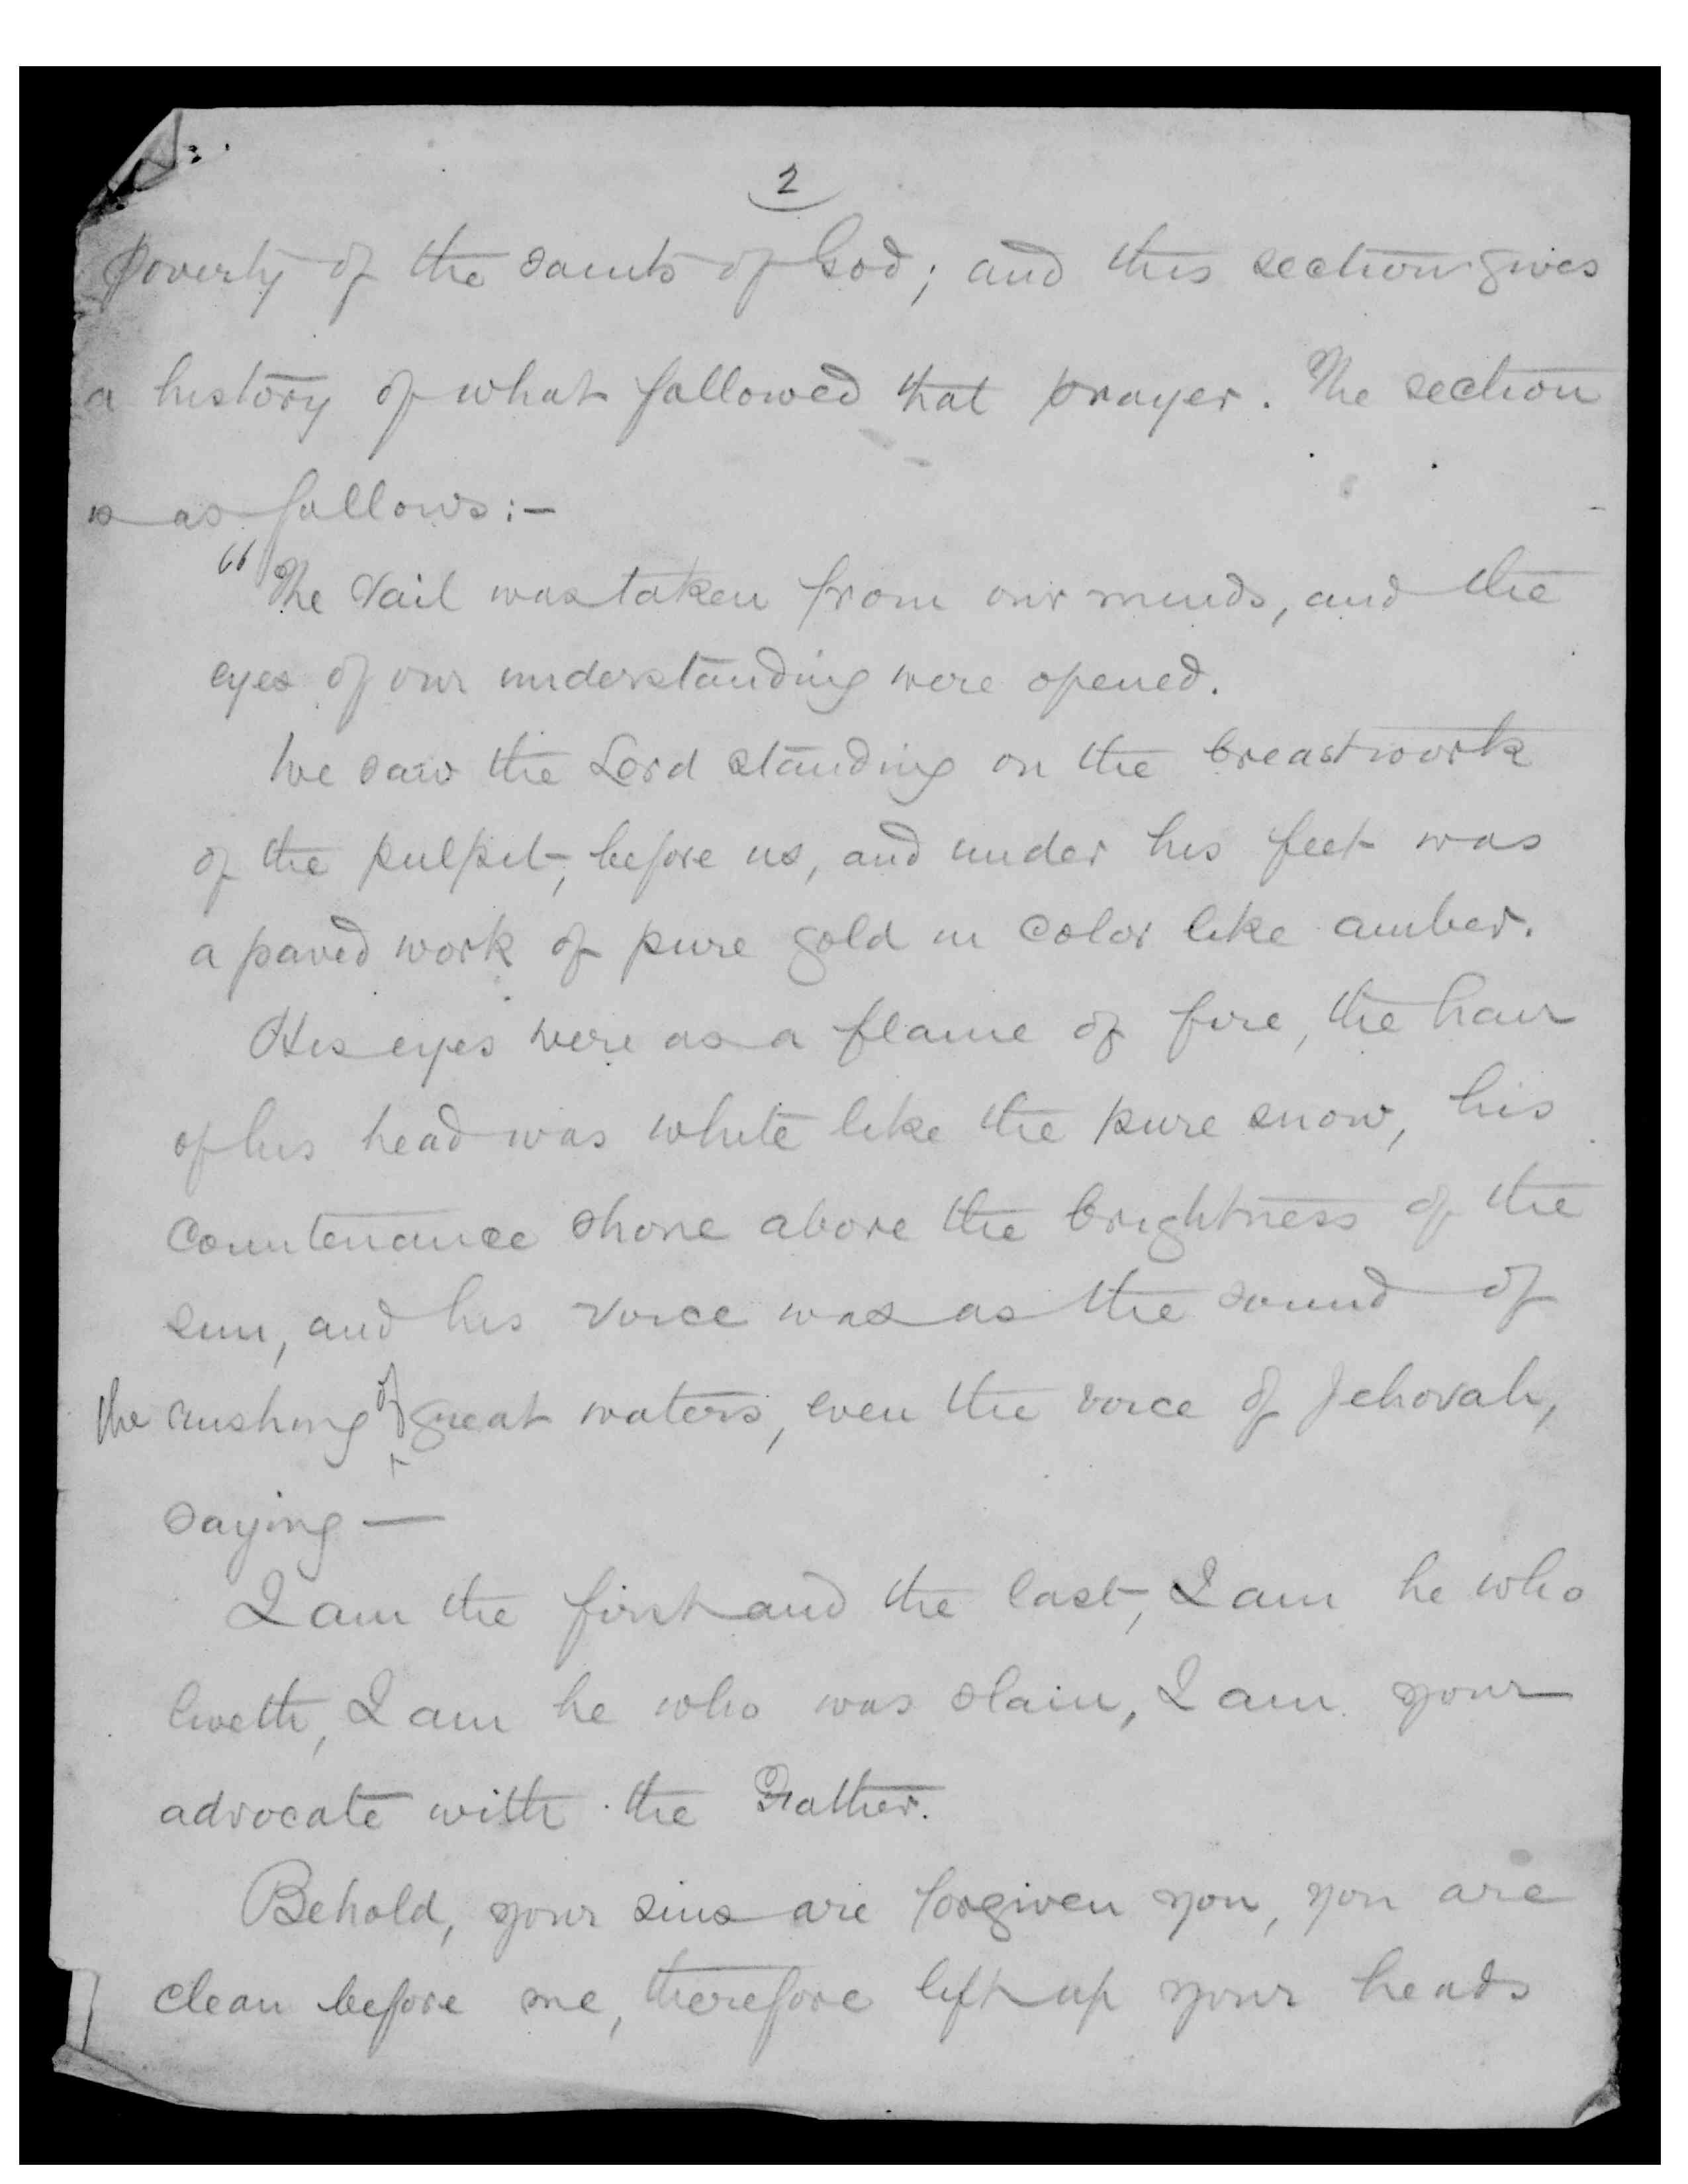 2
poverty of the saints of God; and this section gives
a history of what followed that prayer. The section
is as follows:—
"The vail was taken from our minds, and the
eyes of our understanding were opened.
We saw the Lord standing on the breastwork
of the pulpit, before us, and under his feet was
a paved work of pure gold in color like amber.
His eyes were as a flame of fire, the hair
of his head was white like the pure snow, his
countenance shone above the brightness of the
sun, and his voice was as the sound of
the rushing of great waters, even the voice of Jehovah,
saying—
I am the first and the last, I am he who
liveth, I am he who was slain, I am your
advocate with the Father.
Behold, your sins are forgiven you, you are
clean before me, therefore lift up your heads